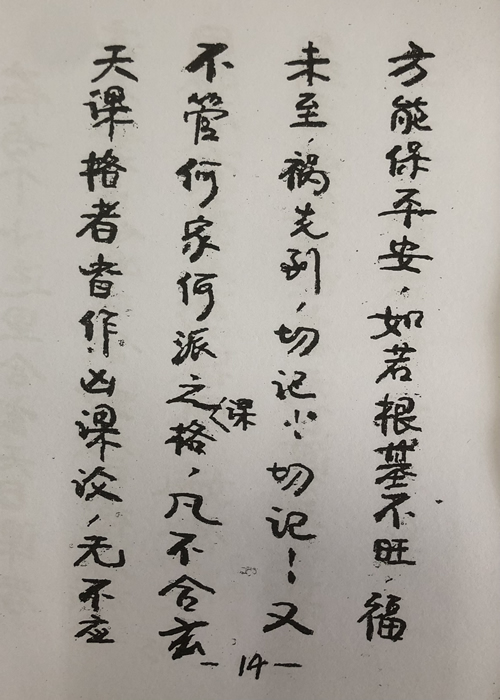 方能保平安，如若根基不旺，福
未至，祸先到，切记！切记！又
不管何家何派之课格，凡不合玄
天课格者皆作凶课论，无不应
—14—